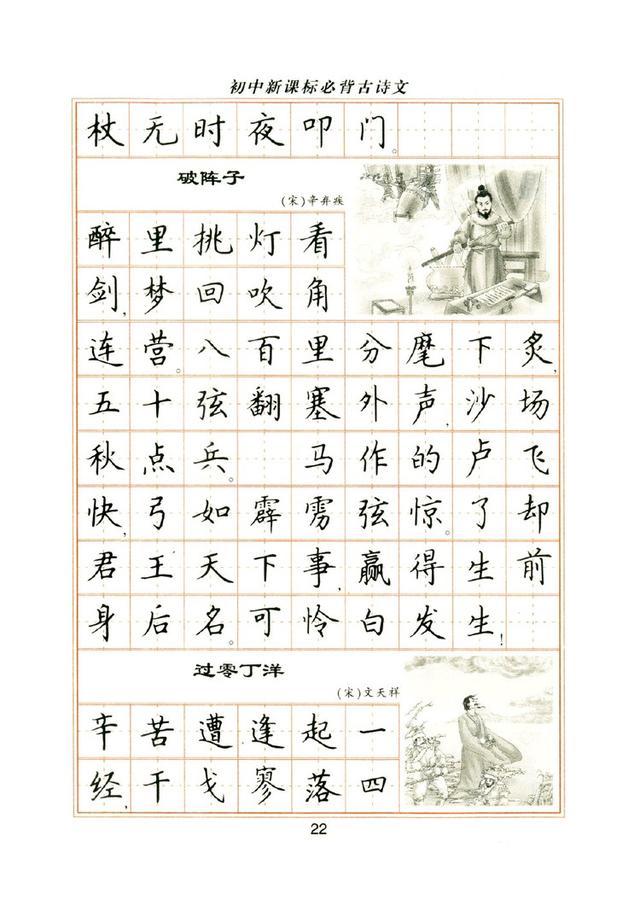 初中新课标必背古诗文
杖无时夜叩门。
破阵子
(宋)辛弃疾
醉里挑灯看
剑,梦回吹角
连营。八百里分麾下炙,
五十弦翻塞外声,沙场
秋点兵。 马作的卢飞
快,弓如霹雳弦惊。了却
君王天下事,赢得生前
身后名。可怜白发生!
过零丁洋
(宋)文天祥
辛苦遭逢起一
经,干戈寥落四
22